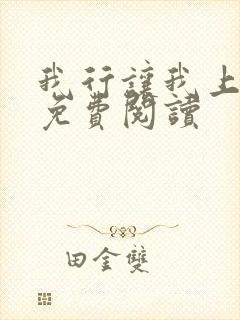 我行讓我上
免費閱讀
田金雙